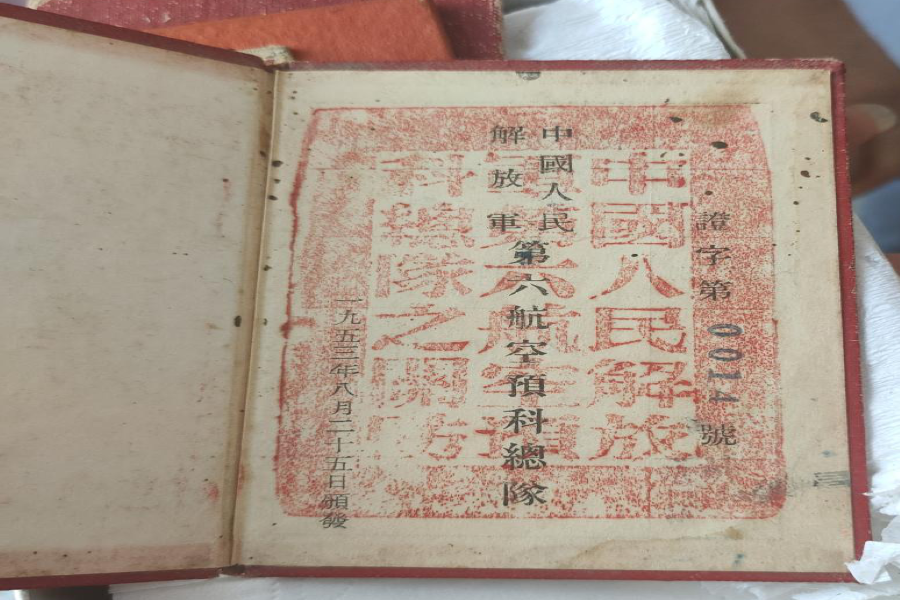 證字第0014號
中國人民
解放軍
第六航空預科總隊
一九五三年八月二十五日頒發
中國人民解放
軍第六航空預
科總隊之關防